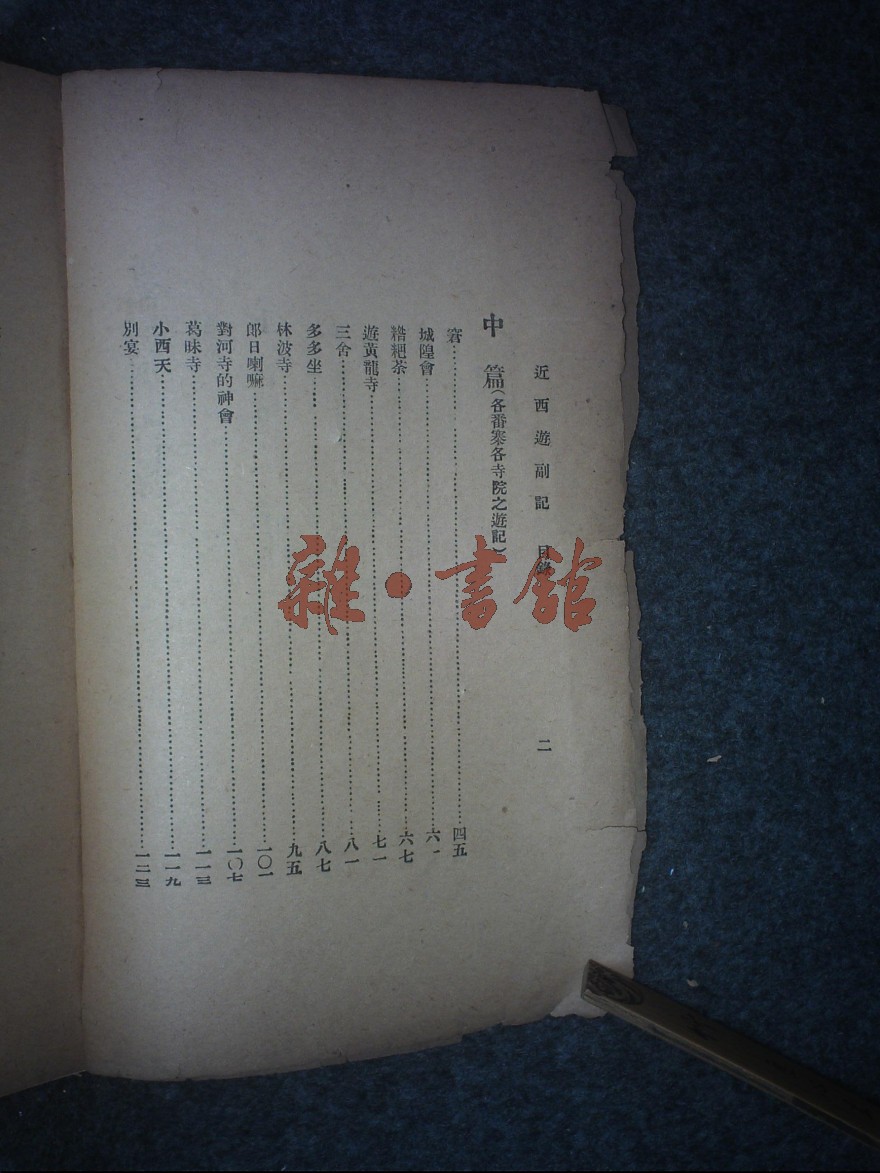 近西遊副記 目錄 二
中篇(各番寨各寺院之遊記)
窘……四五
城隍會……六一
糌粑茶……六七
遊黃龍寺……七一
三舍……八一
多多坐……八七
林波寺……九五
郎日喇嘛……一〇一
對河寺的神會……一〇七
葛昧寺……一一三
小西天……一一九
別宴……一二三
雜·書館